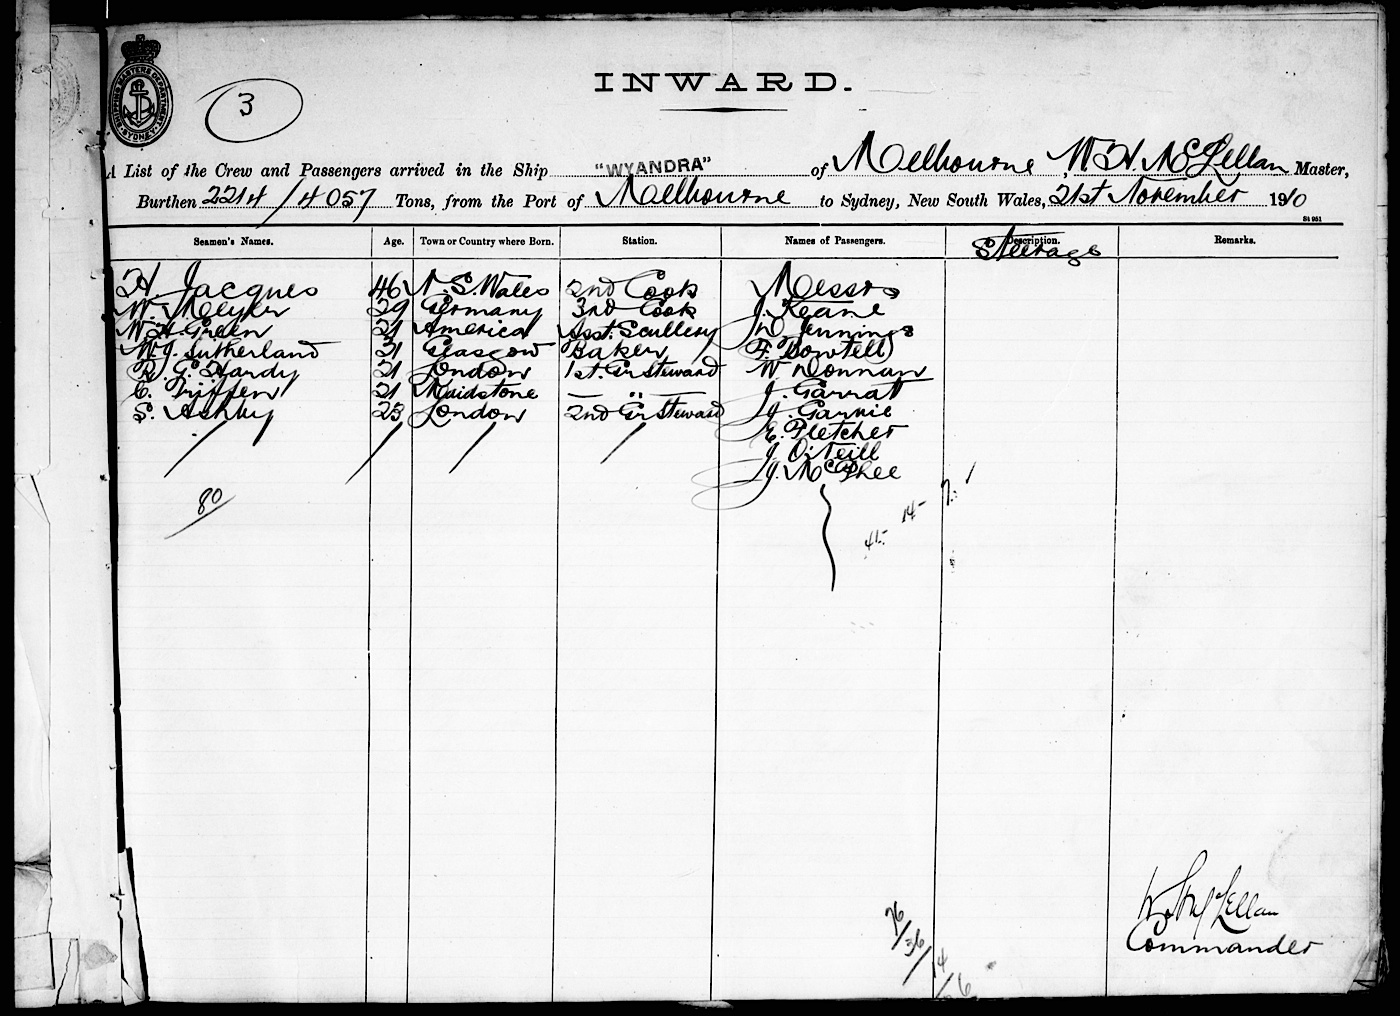 SHIPPING MASTERS DEPARTMENT
SYDNEY
3
INWARD.
A List of the Crew and Passengers arrived in the Ship "WYANDRA" of Melbourne, W H McLellan Master,
Burthen 2214/4057 Tons, from the Port of Melbourne to Sydney, New South Wales, 21st November 1910
St 951
Seamen's Names. Age. Town or Country where Born. Station. Names of Passengers. Description. Remarks.
Steerage
H Jacques 46 N.S. Wales 2nd Cook Messrs
W. Meyer 29 Germany 3rd Cook J. Keane
W.H. Green 21 America Asst. Scullery D Jennings
W.J. Sutherland 31 Glasgow Baker F. Bowtell
R. G. Hardy 21 London 1st. Gr Steward W Donnan
C. Griffen 21 Maidstone — " — J. Garratt
S. Ashby 23 London 2nd Gr Steward J. Garnie
E. Fletcher
J. O'Neill
J. McPhee
80
14-
41-
76/36/14/26
W H McLellan
Commander